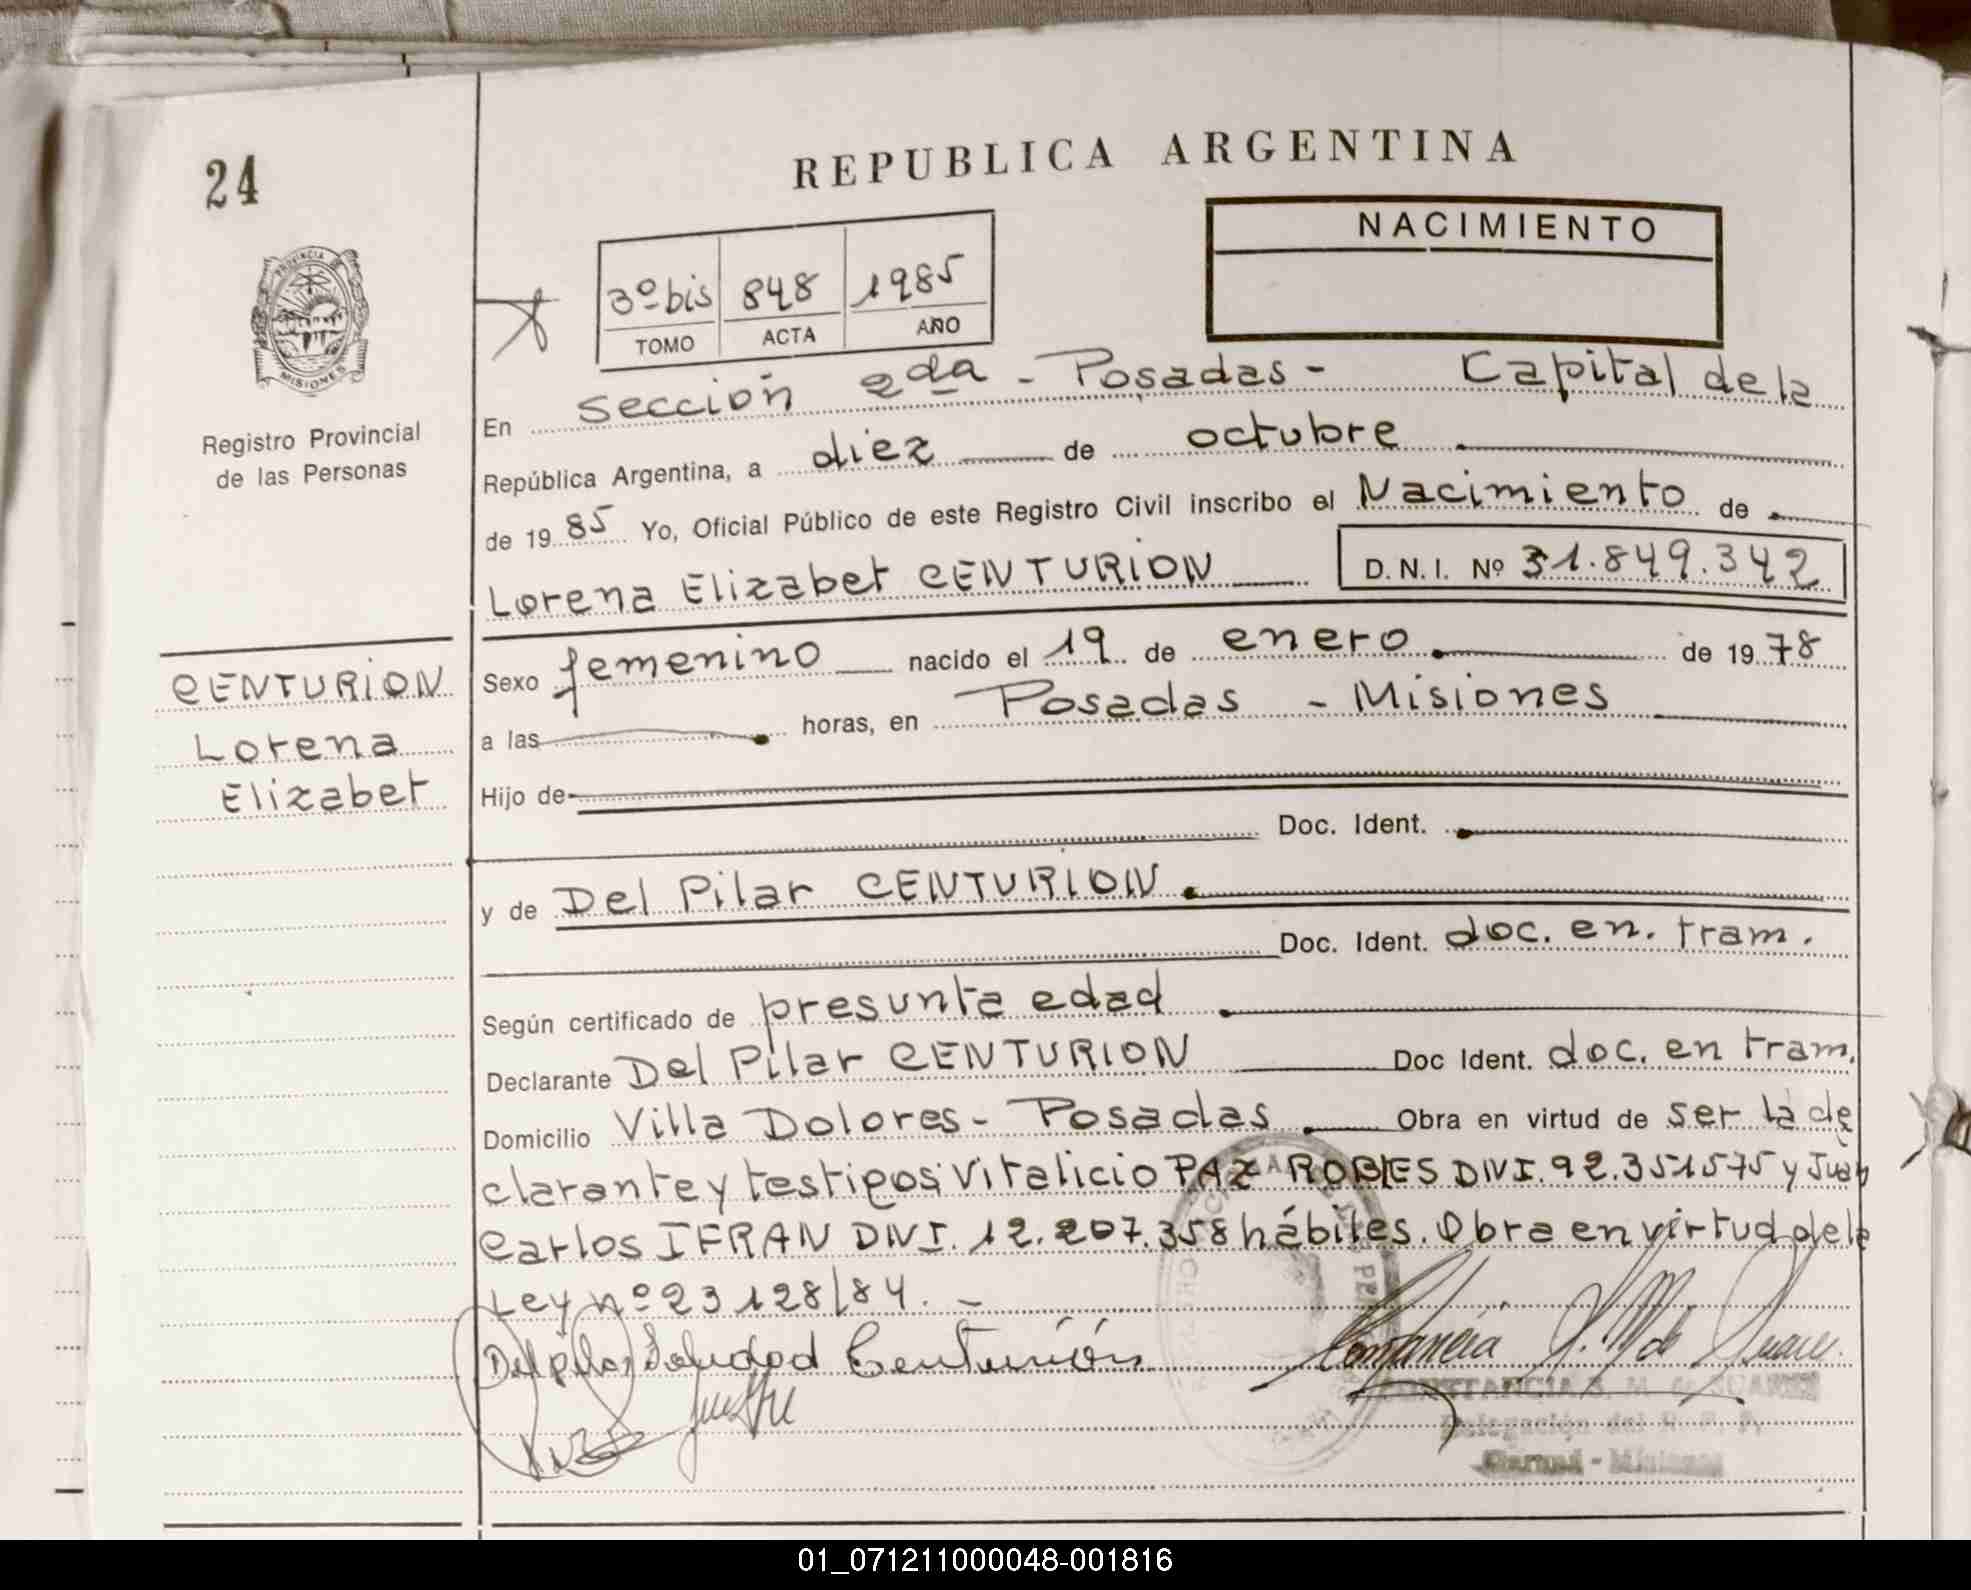 24
REPUBLICA ARGENTINA
NACIMIENTO
3º bis 848 1985
TOMO ACTA AÑO
PROVINCIA DE
MISIONES
Registro Provincial
de las Personas
En Sección 2da - Posadas - Capital de la
República Argentina, a diez de octubre
de 1985 Yo, Oficial Público de este Registro Civil inscribo el Nacimiento de
Lorena Elizabet CENTURION D.N.I. Nº 31.849.342
CENTURION
Lorena
Elizabet
Sexo femenino nacido el 19 de enero de 1978
a las horas, en Posadas - Misiones
Hijo de
Doc. Ident.
y de Del Pilar CENTURION
Doc. Ident. doc. en. tram.
Según certificado de presunta edad
Declarante Del Pilar CENTURION Doc Ident. doc. en tram.
Domicilio Villa Dolores - Posadas Obra en virtud de ser la de
clarante y testigos Vitalicio PAZ ROBLES DNI. 92.351575 y Juan
Carlos IFRAN DNI. 12.207.358 hábiles. Obra en virtud de la
Ley nº 23128/84. -
Del pilar Soledad Centurión
CONSTANCIA S. M. de SUAREZ
Delegación del R. P. P.
Misiones
01_071211000048-001816